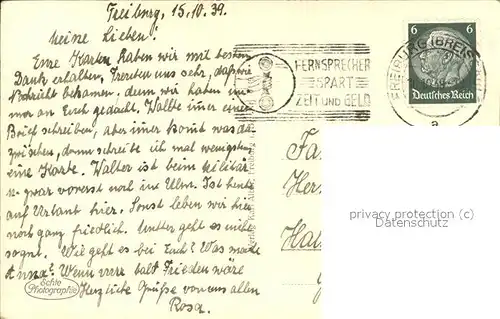 Freiburg, 15.10.39.
Meine Lieben!
Eure Karten haben wir mit besten
Dank erhalten, freuten uns sehr, daß wir
Nachricht bekamen, denn wir haben im-
mer an Euch gedacht. Wollte immer einen
Brief schreiben, aber immer kommt was da-
zwischen, dann schreibe ich mal wenigstens
eine Karte. Walter ist beim Militär
u. zwar vorerst noch in Ulm. Ist heute
auf Urlaub hier. Sonst leben wir hier
noch ganz friedlich. Mutter geht es
Wie geht es bei Euch? Was macht
Anna? Wenn nur bald Frieden wäre
Herzliche Grüße von uns allen
Rosa
Echte
Photographie
FERNSPRECHER
SPART
ZEIT UND GELD
FREIBURG (BREISGAU)
6 6
Deutsches Reich
Fa
Her
Ha
privacy protection (c)
www.ansichtskarten-center.de